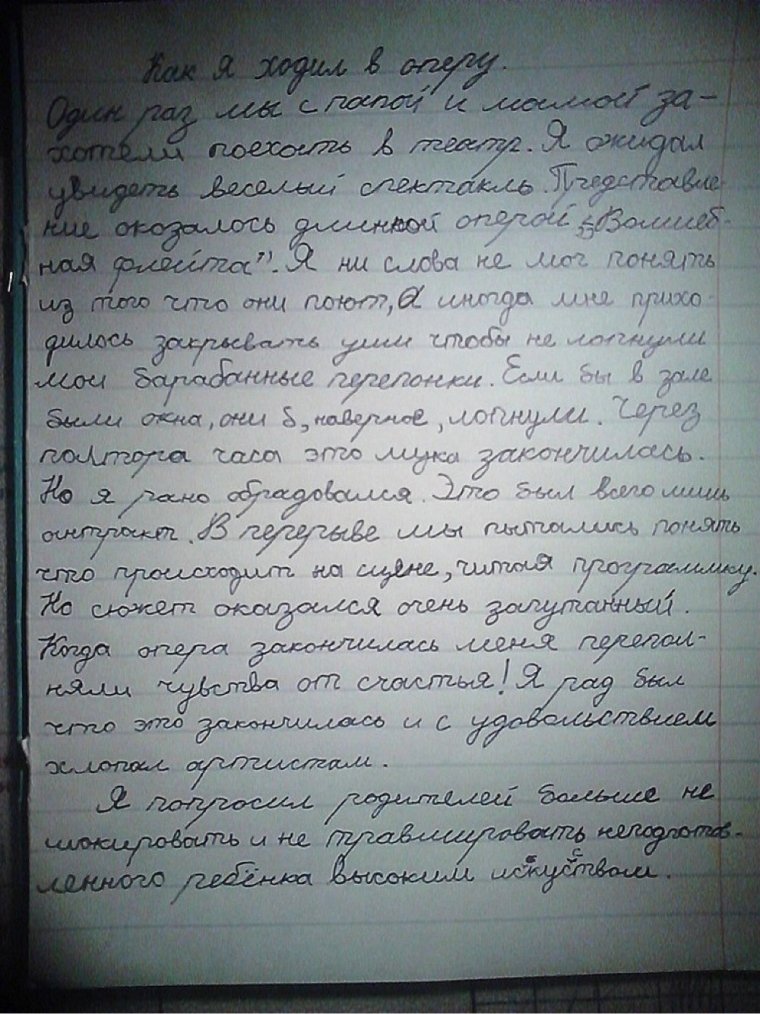 Как я ходил в оперу.
Один раз мы с папой и мамой за-
хотели поехать в театр. Я ожидал
увидеть веселый спектакль. Представле
ние оказалось длинной оперой „Волшеб-
ная флейта". Я ни слова не мог понять
из того что они поют, а иногда мне прихо-
дилось закрывать уши чтобы не лопнули
мои барабанные перепонки. Если бы в зале
были окна, они б, наверное, лопнули. Через
полтора часа это мука закончилась.
Но я рано обрадовался. Это был всего лишь
антракт. В перерыве мы пытались понять
что происходит на сцене, читая программку.
Но сюжет оказался очень запутанный.
Когда опера закончилась меня перепол-
няли чувства от счастья! Я рад был
что это закончилась и с удовольствием
хлопал артистам.
Я попросил родителей больше не
шокировать и не травмировать неподготов-
ленного ребёнка высоким искусством.